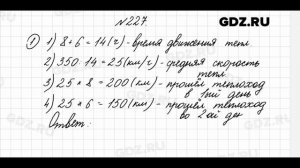 GDZ.RU
№227.
① 1) 8+6=14(ч) - время движения тепл.
2) 350:14=25(км/ч) - средняя скорость
тепл.
3) 25×8=200(км) - прошёл теплоход
в 1ый день
4) 25×6=150(км) - прошёл теплоход
во 2ой де
Ответ: